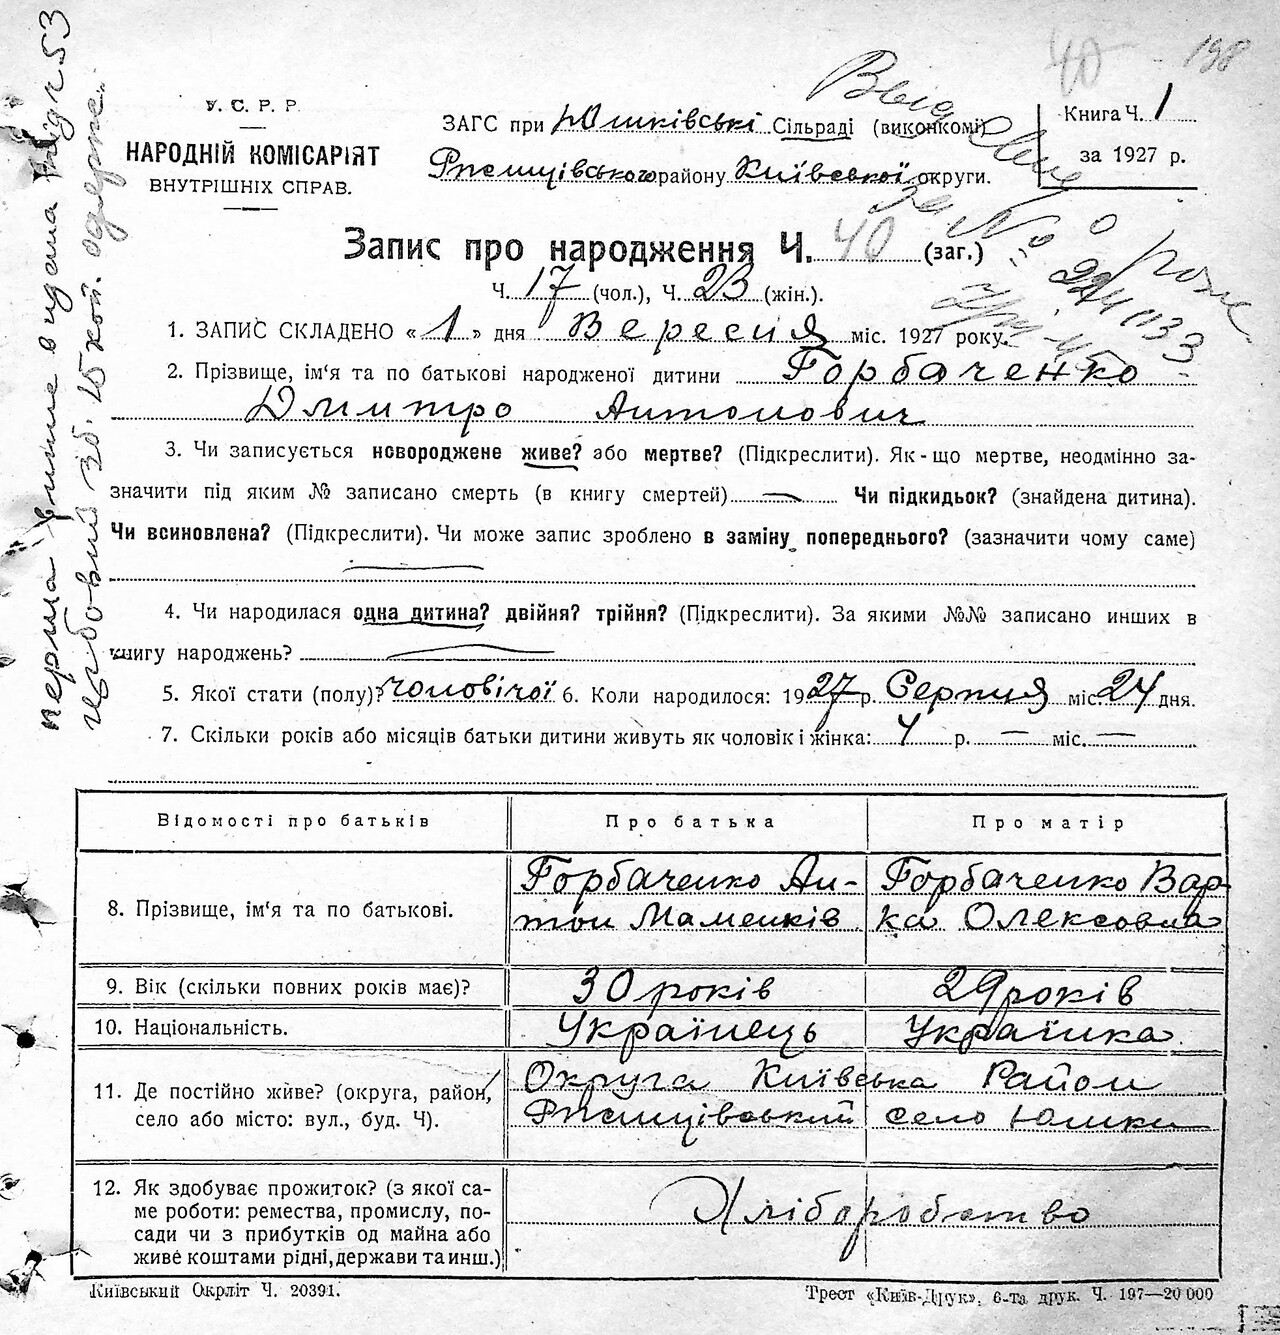 40 198
У. С. Р. Р.
НАРОДНІЙ КОМІСАРІЯТ
ВНУТРІШНІХ СПРАВ.
ЗАГС при Юшківські Сільраді (виконкомі)
Ржищівського району Київської округи.
Книга Ч. 1
за 1927 р.
Запис про народження Ч. 40 (заг.)
Ч. 17 (чол.), Ч. 23 (жін.).
1. ЗАПИС СКЛАДЕНО «1» дня Вересня міс. 1927 року.
2. Прізвище, ім'я та по батькові народженої дитини Горбаченко
Дмитро Антонович
3. Чи записується новороджене живе? або мертве? (Підкреслити). Як-що мертве, неодмінно за-
значити під яким № записано смерть (в книгу смертей) — Чи підкидьок? (знайдена дитина).
Чи всиновлена? (Підкреслити). Чи може запис зроблено в заміну попереднього? (зазначити чому саме)
4. Чи народилася одна дитина? двійня? трійня? (Підкреслити). За якими №№ записано инших в
книгу народжень?
5. Якої стати (полу)? чоловічої 6. Коли народилося: 1927 р. Серпня міс. 24 дня.
7. Скільки років або місяців батьки дитини живуть як чоловік і жінка: 4 р. — міс. —
Відомості про батьків Про батька Про матір
8. Прізвище, ім'я та по батькові. Горбаченко Ан- Горбаченко Вар-
тон Мамечків ка Олексовна
9. Вік (скільки повних років має)? 30 років 29 років
10. Національність. Українець Українка
11. Де постійно живе? (округа, район, Округа Київська Район
село або місто: вул., буд. Ч). Ржищівський село Юшки
12. Як здобуває прожиток? (з якої са-
ме роботи: ремества, промислу, по- Хліборобство
сади чи з прибутків од майна або
живе коштами рідні, держави та инш.)
Київський Окрліт Ч. 20391.
Трест «Київ-Друк». 6-та друк. Ч. 197—20 000